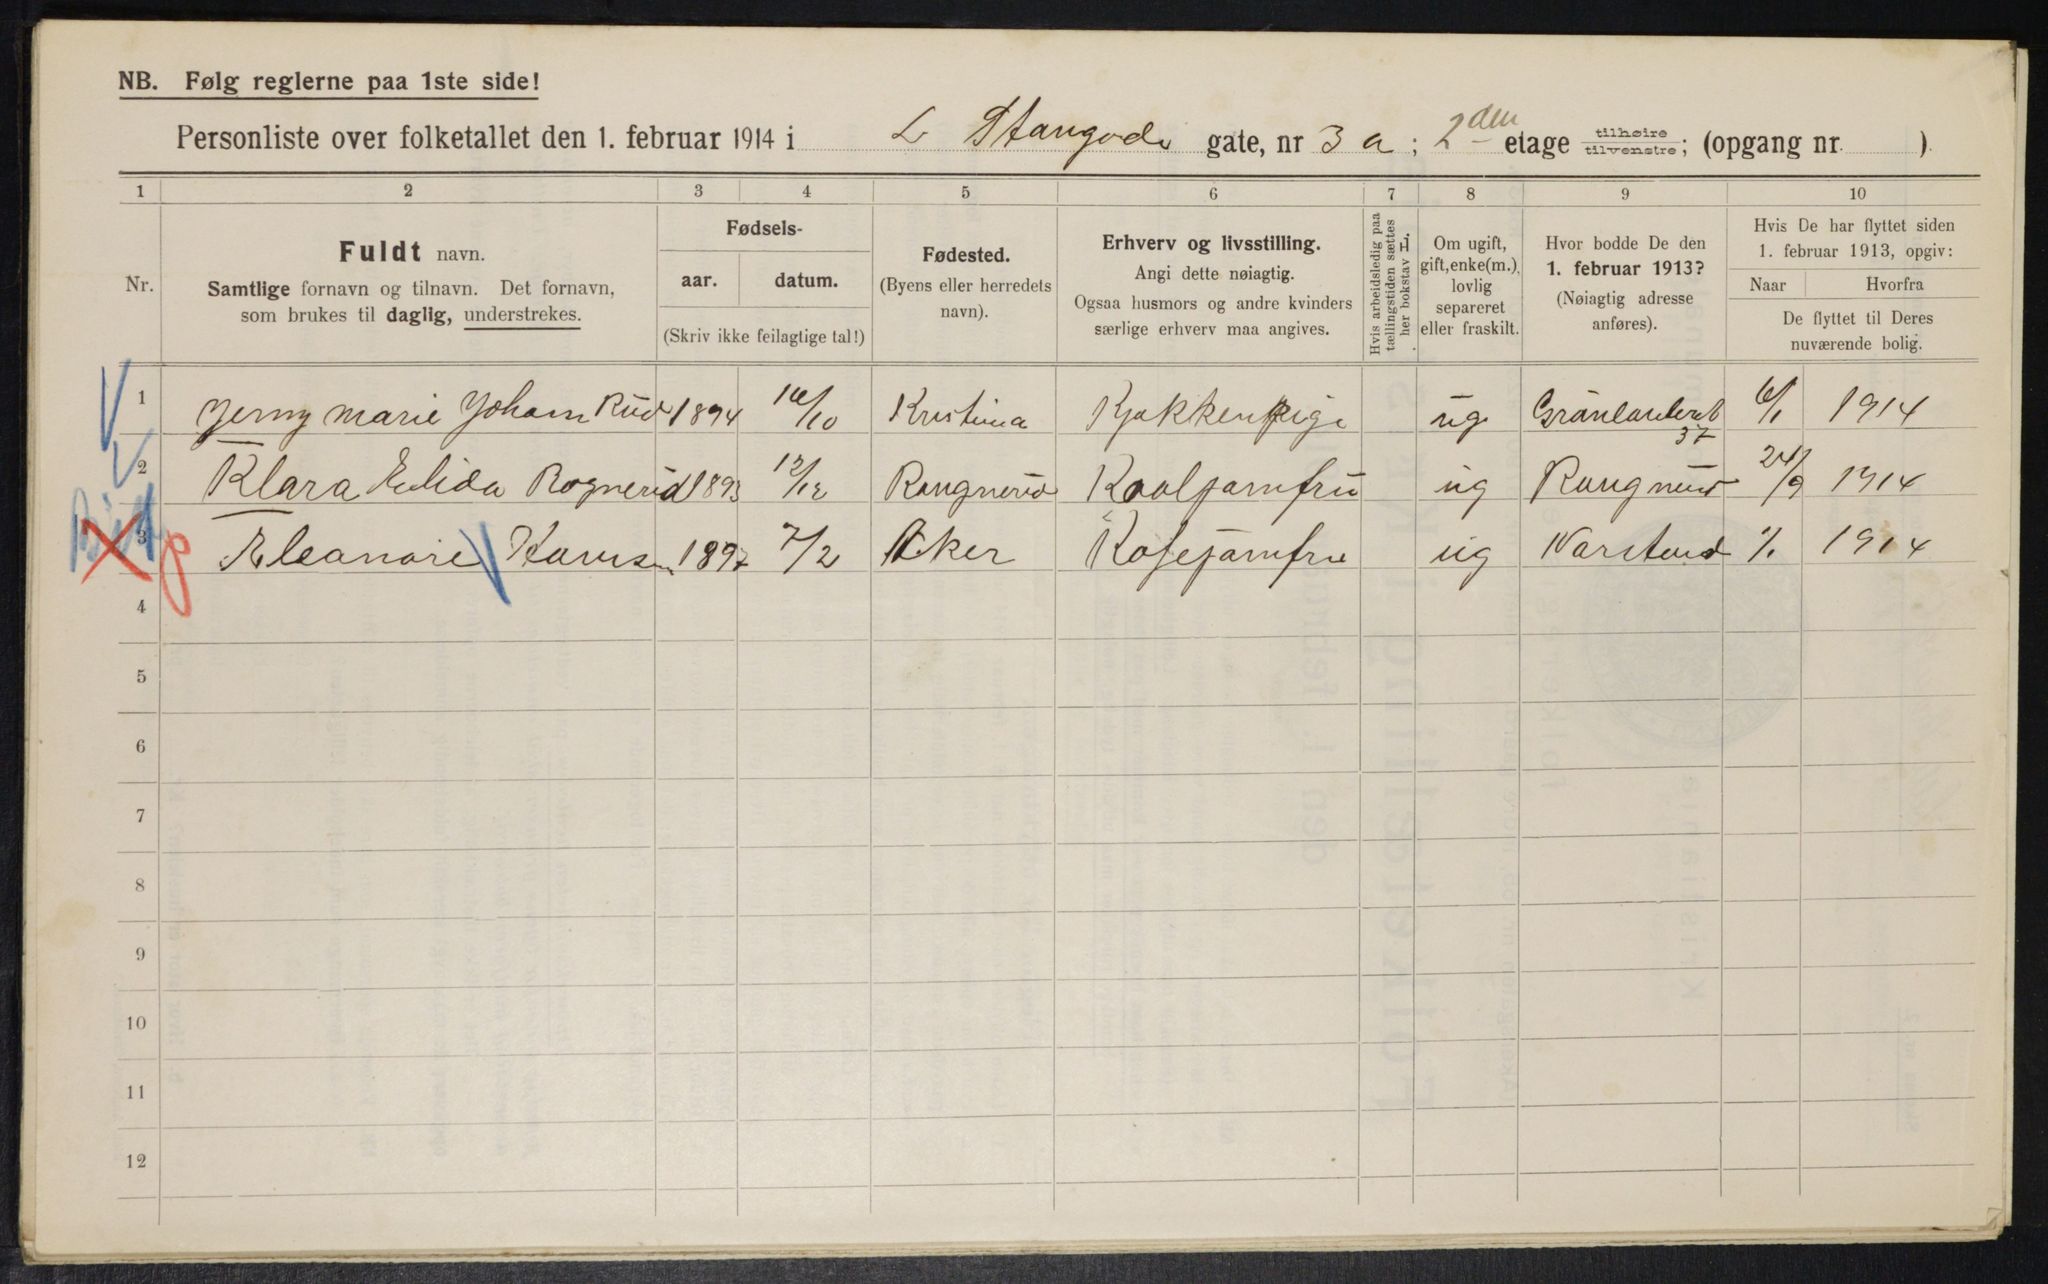 NB. Følg reglerne paa 1ste side!
Personliste over folketallet den 1. februar 1914 i L Stangade gate, nr 3 a; 2den etage tilhøire/tilvenstre; (opgang nr. )
1 2 3 4 5 6 7 8 9 10
Nr.
Fuldt navn.
Samtlige fornavn og tilnavn. Det fornavn,
som brukes til daglig, understrekes.
Fødsels-
aar. datum.
(Skriv ikke feilagtige tal!)
Fødested.
(Byens eller herredets
navn).
Erhverv og livsstilling.
Angi dette nøiagtig.
Ogsaa husmors og andre kvinders
særlige erhverv maa angives.
Hvis arbeidsledig paa
tællingstiden sættes
her bokstav L.
Om ugift,
gift, enke(m.),
lovlig
separeret
eller fraskilt.
Hvor bodde De den
1. februar 1913?
(Nøiagtig adresse
anføres).
Hvis De har flyttet siden
1. februar 1913, opgiv:
Naar Hvorfra
De flyttet til Deres
nuværende bolig.
1 Jenny Marie Johan Rud 1894 16/10 Kristina Kjøkkenpige ug Grønlanderet 37 6/1 1914
2 Klara Elida Rognerud 1893 12/12 Rangnerud ug 24/9 1914
3 Eleanore 1897 7/2 Aker ug 1914
4
5
6
7
8
9
10
11
12